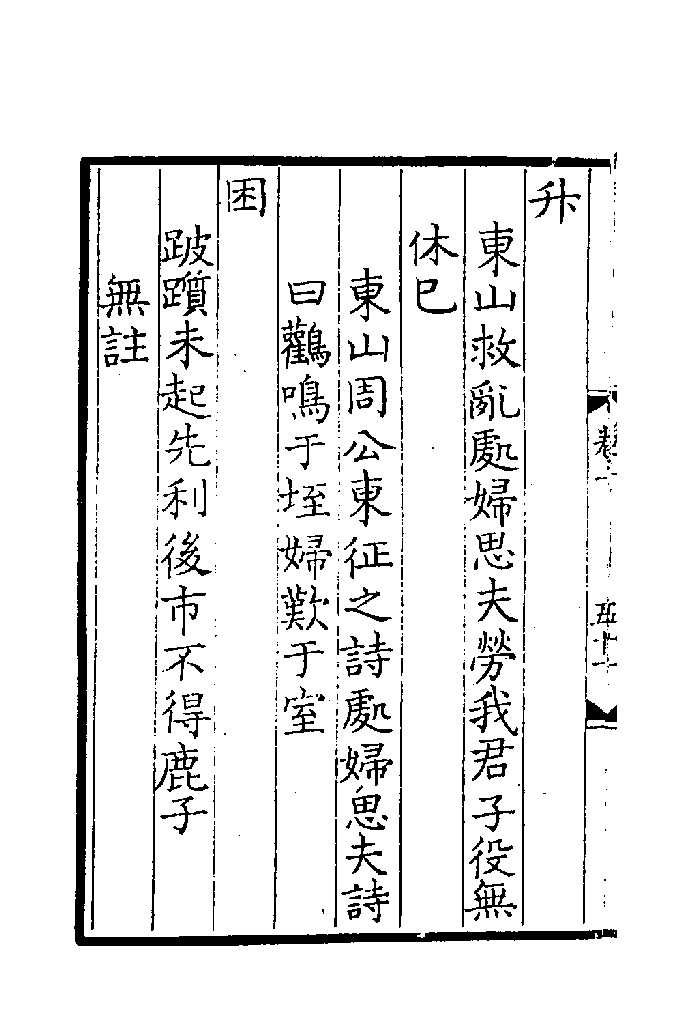 升
東山救亂處婦思夫勞我君子役無
休已
東山周公東征之詩處婦思夫詩
曰鸛鳴于垤婦歎于室
困
跛躓未起先利後市不得鹿子
無註